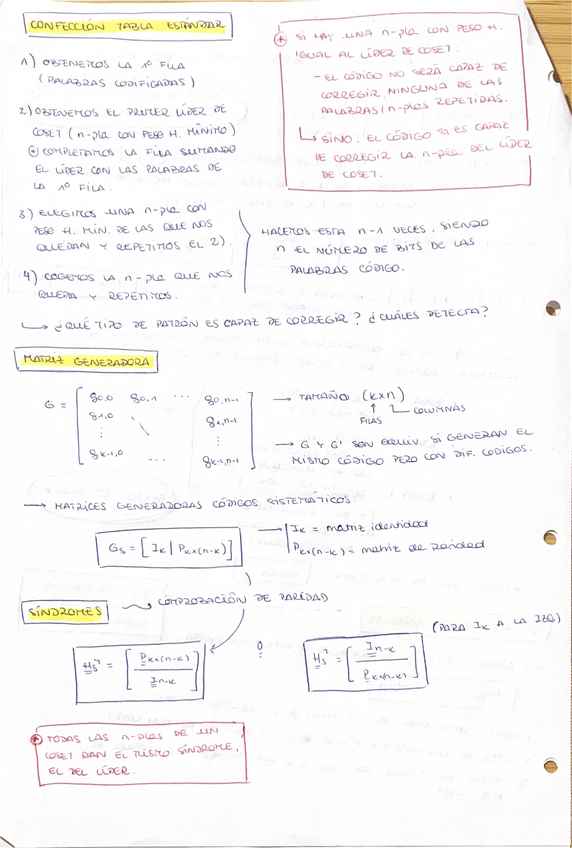 CONFECCIÓN TABLA ESTÁNDAR
1) OBTENEMOS LA 1º FILA
(PALABRAS CODIFICADAS)
2) OBTENEMOS EL PRIMER LÍDER DE
COSET (n-pla CON PESO H. MÍNIMO)
⊛ COMPLETAMOS LA FILA SUMANDO
EL LÍDER CON LAS PALABRAS DE
LA 1º FILA.
3) ELEGIMOS UNA n-pla CON
PESO H. MIN. DE LAS QUE NOS
QUEDAN Y REPETIMOS EL 2).
4) COGEMOS LA n-pla QUE NOS
QUEDA Y REPETIMOS.
⊛ SI HAY UNA n-pla CON PESO H.
IGUAL AL LÍDER DE COSET:
- EL CÓDIGO NO SERÁ CAPAZ DE
CORREGIR NINGUNA DE LAS
PALABRAS/n-plas REPETIDAS.
↳ SINO: EL CÓDIGO SI ES CAPAZ
DE CORREGIR LA n-pla DEL LÍDER
DE COSET.
HACEMOS ESTA n-1 VECES, SIENDO
n EL NÚMERO DE BITS DE LAS
PALABRAS CÓDIGO.
↳ ¿QUÉ TIPO DE PATRÓN ES CAPAZ DE CORREGIR? ¿CUÁLES DETECTA?
MATRIZ GENERADORA
G = [ g0,0 g0,1 ... g0,n-1
g1,0 g1,n-1
⋮ ⋮
gk-1,0 ... gk-1,n-1 ]
→ TAMAÑO (k×n)
FILAS COLUMNAS
→ G Y G' SON EQUIV. SI GENERAN EL
MISMO CÓDIGO PERO CON DIF. CODIGOS.
→ MATRICES GENERADORAS CÓDIGOS SISTEMÁTICOS:
Gs = [ Ik | Pk×(n-k) ]
→ Ik = matriz identidad
Pk×(n-k) = matriz de paridad
SÍNDROMES
COMPROBACIÓN DE PARIDAD
(PARA Ik A LA IZQ)
Hs^T = [ Pk×(n-k) / In-k ] o Hs^T = [ In-k / Pk×(n-k) ]
⊛ TODAS LAS n-plas DE UN
COSET DAN EL MISMO SÍNDROME,
EL DEL LÍDER.